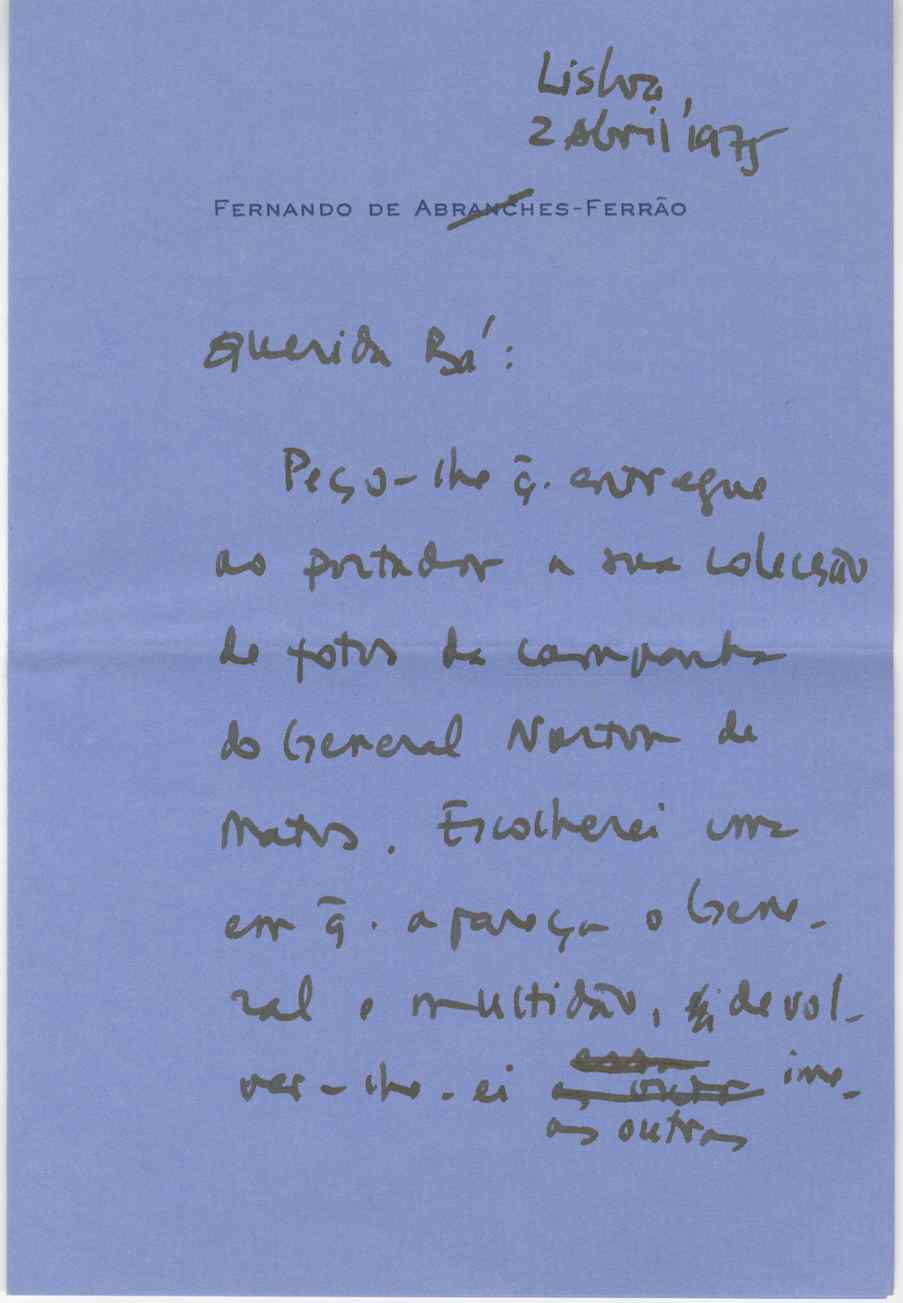 Lisboa,
2 Abril '1975
FERNANDO DE ABRANCHES-FERRÃO
Querida Bá:
Peço-lhe q̄. entregue
ao portador a sua colecção
de fotos da campanha
do General Norton de
Matos. Escolherei uma
em q̄. apareça o Gene-
ral e multidão, devol-
ver-lhe-ei ime-
as outras